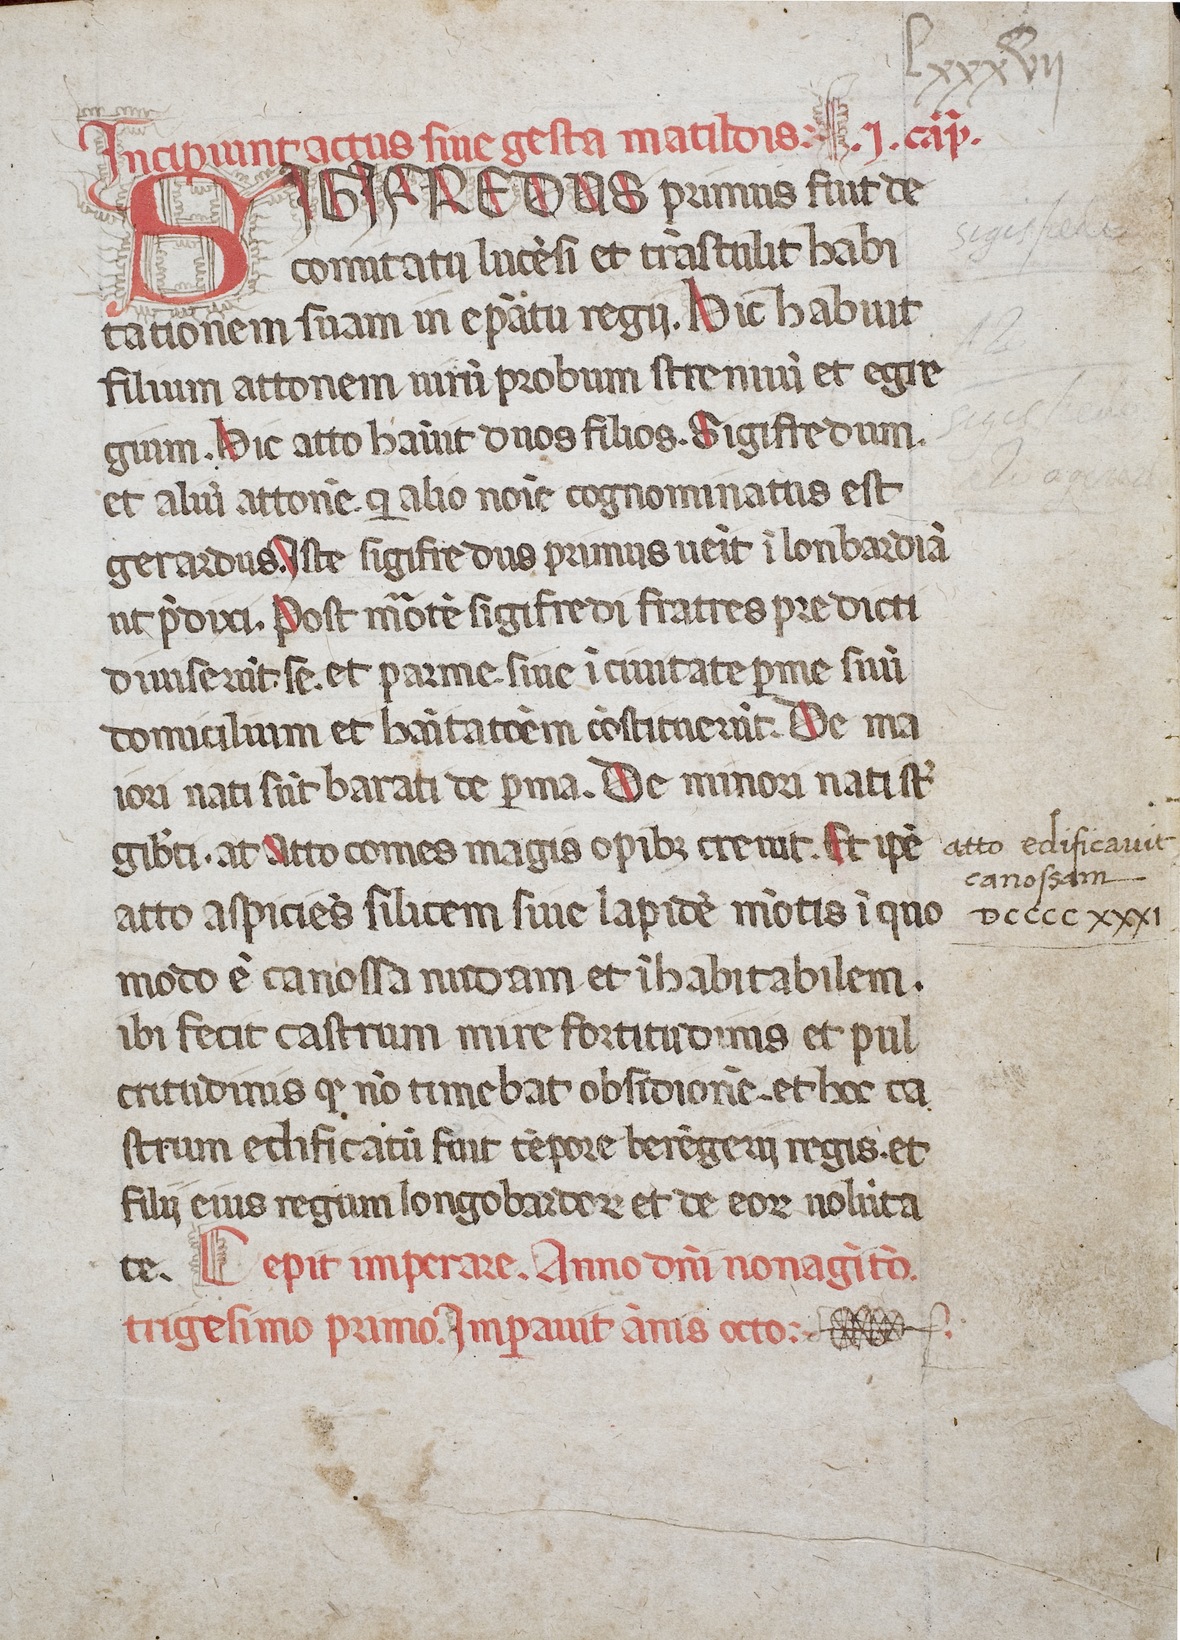 Lxxxvii
Incipiunt actus siue gesta matildis: .I. cap̄.
SIGIFREDUS primus fuit de
comitatu lucēsi et trāstulit habi
tationem suam in ep̄atu regij. Hic habuit
filium attonem uirū probum strenuū et egre
gium. Hic atto habūit duos filios. Sigifredum.
et aliū attonē. qi alio noīe cognominatus est
gerardus. Iste sigifredus primus uēit ī lonbardiā
ut p̄dixi. Post mortē sigifredi fratres predicti
diuiserūt se. et parme siue ī ciuitate ꝑme suū
domicilium et habitatōem cōstituerūt. De ma
iori nati sūt barati de ꝑma. De minori nati st̄
gib̄ti. at Atto comes magis opibꝫ creuit. Et ip̄e
atto aspiciēs silicem siue lapidē mōtis ī quo
modo ē canossa nudam et īhabitabilem.
ibi fecit castrum mire fortitudinis et pul
critudinis qꝫ nō timebat obsidionē. et hoc ca
strum edificatū fuit tēpore berēgerij regis. et
filij eius regum longobardoꝝ et de eoꝝ uolūta
te. Cepit imperare. Anno dn̄i nonagīto.
trigesimo primo. Imꝑauit ānis octo:
sigisfredus
atto edificauit
canossam
DCCCC XXXI